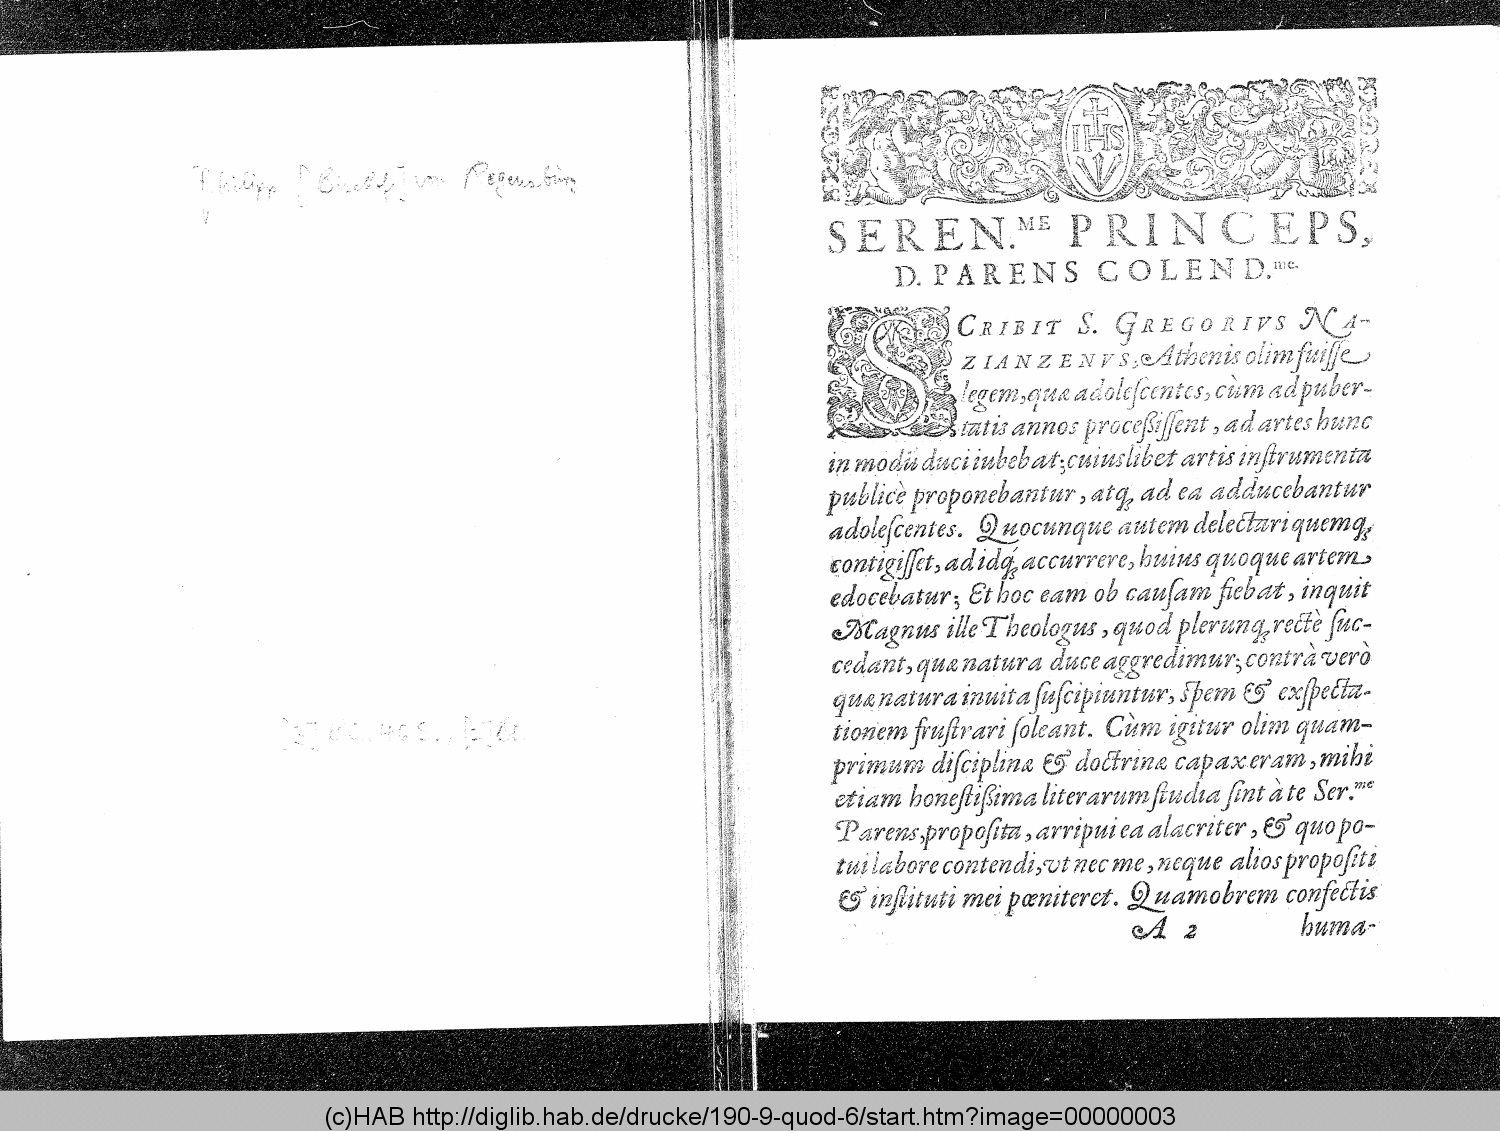 Philipp [Bischof] von Regensburg
IHS
SEREN.ME PRINCEPS,
D. PARENS COLEND.me.
SCRIBIT S. GREGORIVS NA-
ZIANZENVS, Athenis olim fuiſſe
legem, quæ adoleſcentes, cùm ad puber-
tatis annos proceßiſſent, ad artes hunc
in modū duci iubebat; cuiuslibet artis inſtrumenta
publicè proponebantur, atq; ad ea adducebantur
adoleſcentes. Quocunque autem delectari quemq;
contigiſſet, ad idq́; accurrere, huius quoque artem
edocebatur; Et hoc eam ob cauſam fiebat, inquit
Magnus ille Theologus, quod plerunq; rectè ſuc-
cedant, quæ natura duce aggredimur; contrà verò
quæ natura inuita ſuſcipiuntur, ſpem & exſpecta-
tionem fruſtrari ſoleant. Cùm igitur olim quam-
primum diſciplinæ & doctrinæ capax eram, mihi
etiam honeſtißima literarum ſtudia ſint à te Ser.me
Parens, propoſita, arripui ea alacriter, & quo po-
tui labore contendi, vt nec me, neque alios propoſiti
& inſtituti mei pœniteret. Quamobrem confectis
A 2 huma-
(c)HAB http://diglib.hab.de/drucke/190-9-quod-6/start.htm?image=00000003